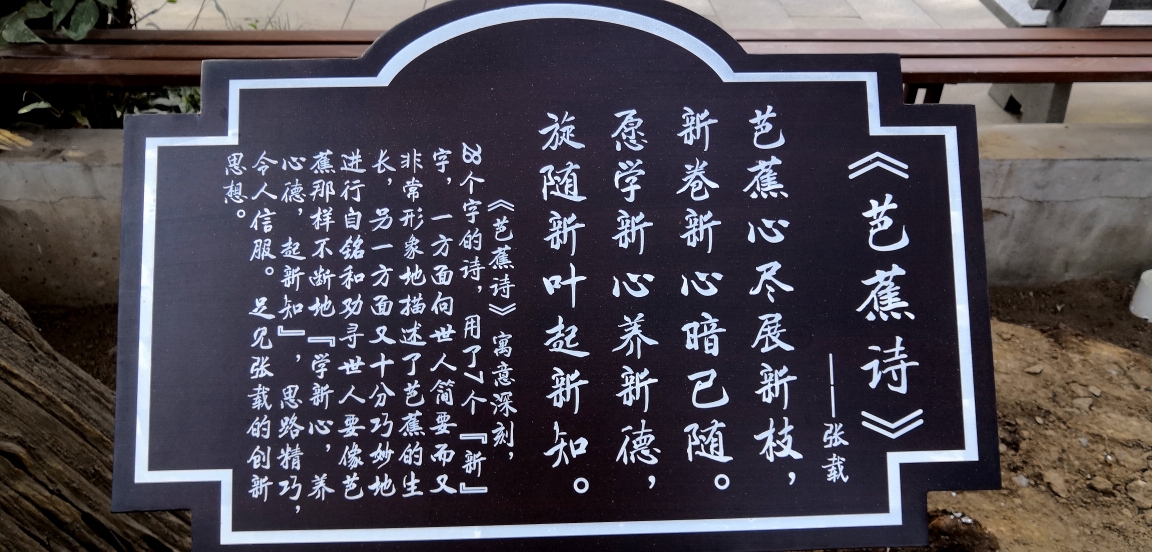 《芭蕉诗》
——张载
芭蕉心尽展新枝，
新卷新心暗已随。
愿学新心养新德，
旋随新叶起新知。
《芭蕉诗》寓意深刻，
28个字的诗，用了7个『新』
字，一方面向世人简要而又
非常形象地描述了芭蕉的生
长，另一方面又十分巧妙地
进行自铭和劝寻世人要像芭
蕉那样不断地『学新心，养
心德，起新知』，思路精巧，
令人信服。足见张载的创新
思想。